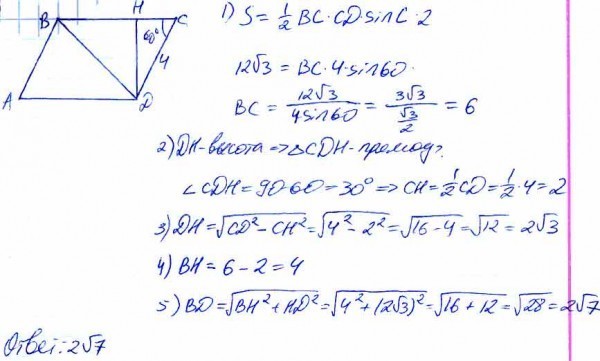 B H C
60°
4
A D
1) S = 1/2 BC·CD·sinC·2
12√3 = BC·4·sin60
BC = 12√3/4sin60 = 3√3/(√3/2) = 6
2) DH-высота => △CDH-прямоуг.
∠CDH = 90-60 = 30° => CH = 1/2 CD = 1/2·4 = 2
3) DH = √(CD² - CH²) = √(4² - 2²) = √(16 - 4) = √12 = 2√3
4) BH = 6 - 2 = 4
5) BD = √(BH² + HD²) = √(4² + (2√3)²) = √(16 + 12) = √28 = 2√7
Ответ: 2√7